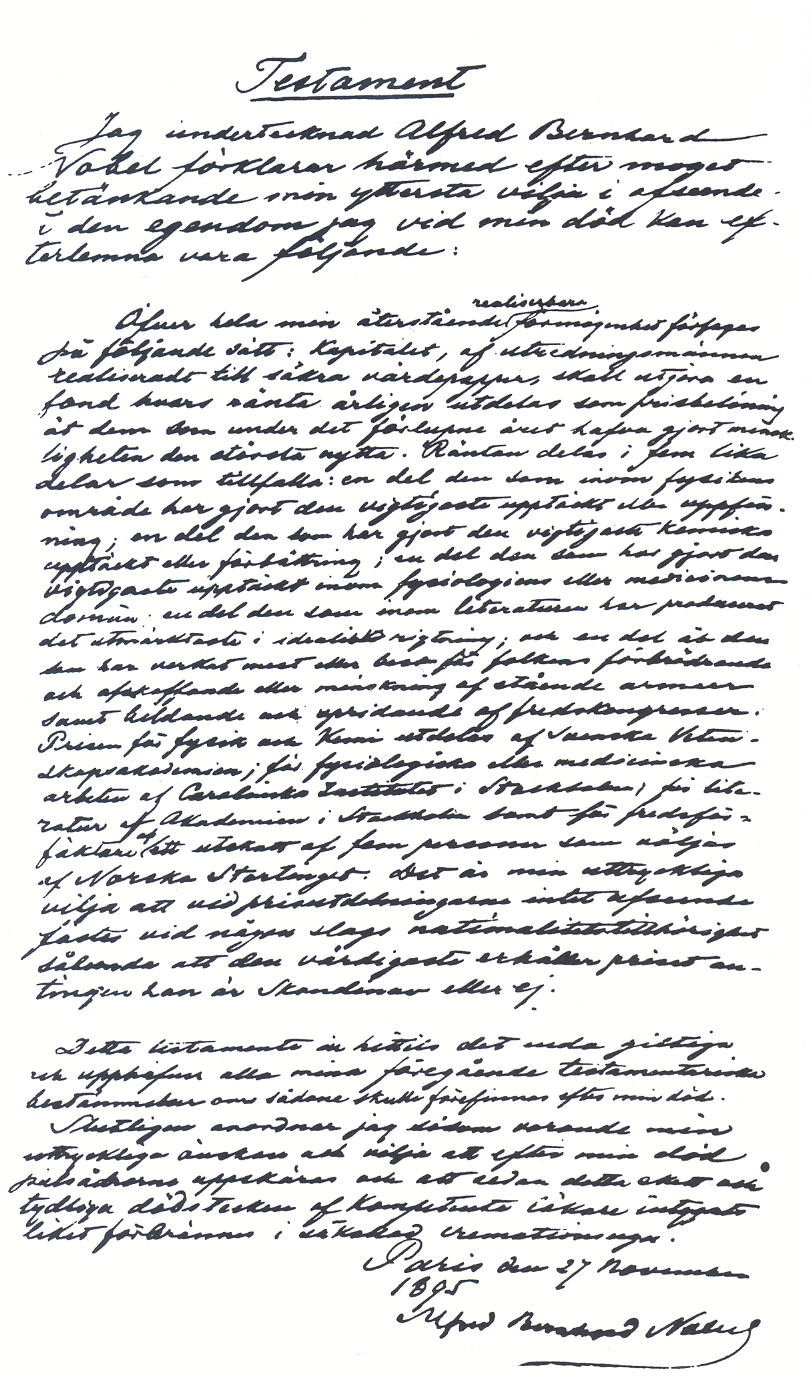 Testament
Jag undertecknad Alfred Bernhard
Nobel förklarar härmed efter moget
betänkande min yttersta vilja i afseende
å den egendom jag vid min död kan ef-
terlemna vara följande:
realiserbara
Öfver hela min återstående förmögenhet förfoges
på följande sätt: Kapitalet, af utredningsmännen
realiseradt till säkra värdepapper, skall utgöra en
fond hvars ränta årligen utdelas som prisbelöning
åt dem som under det förlupne året hafva gjort mensk-
ligheten den största nytta. Räntan delas i fem lika
delar som tillfalla: en del den som inom fysikens
område har gjort den vigtigaste upptäckt eller uppfin-
ning; en del den som har gjort den vigtigaste kemiska
upptäckt eller förbättring; en del den som har gjort den
vigtigaste upptäckt inom fysiologiens eller medicinens
domän; en del den som inom literaturen har producerat
det utmärktaste i idealisk rigtning; och en del åt den
som har verkat mest eller best för folkens förbrödrande
och afskaffande eller minskning af stående armeer
samt bildande och spridande af fredskongresser.
Prisen för fysik och kemi utdelas af Svenska Veten-
skapsakademien; för fysiologiska eller medicinska
arbeten af Carolinska Institutet i Stockholm; för lite-
ratur af Akademien i Stockholm samt för fredsför-
fäktare af ett utskott af fem personer som väljas
af Norska Stortinget. Det är min uttryckliga
vilja att vid prisutdelningarne intet afseende
fästes vid någon slags nationalitetstillhörighet
sålunda att den värdigaste erhåller priset an-
tingen han är Skandinav eller ej.
Detta testamente är hittills det enda giltiga
och upphäfver alla mina föregående testamentariska
bestämmelser om sådane skulle förefinnas efter min död.
Slutligen anordnar jag såsom varande min
uttryckliga önskan och vilja att efter min död
pulsådrorna uppskäras och att sedan detta skett och
tydliga dödstecken af kompetente läkare intygats
liket förbrännes i såkallad cremationsugn.
Paris den 27 November
1895
Alfred Bernhard Nobel